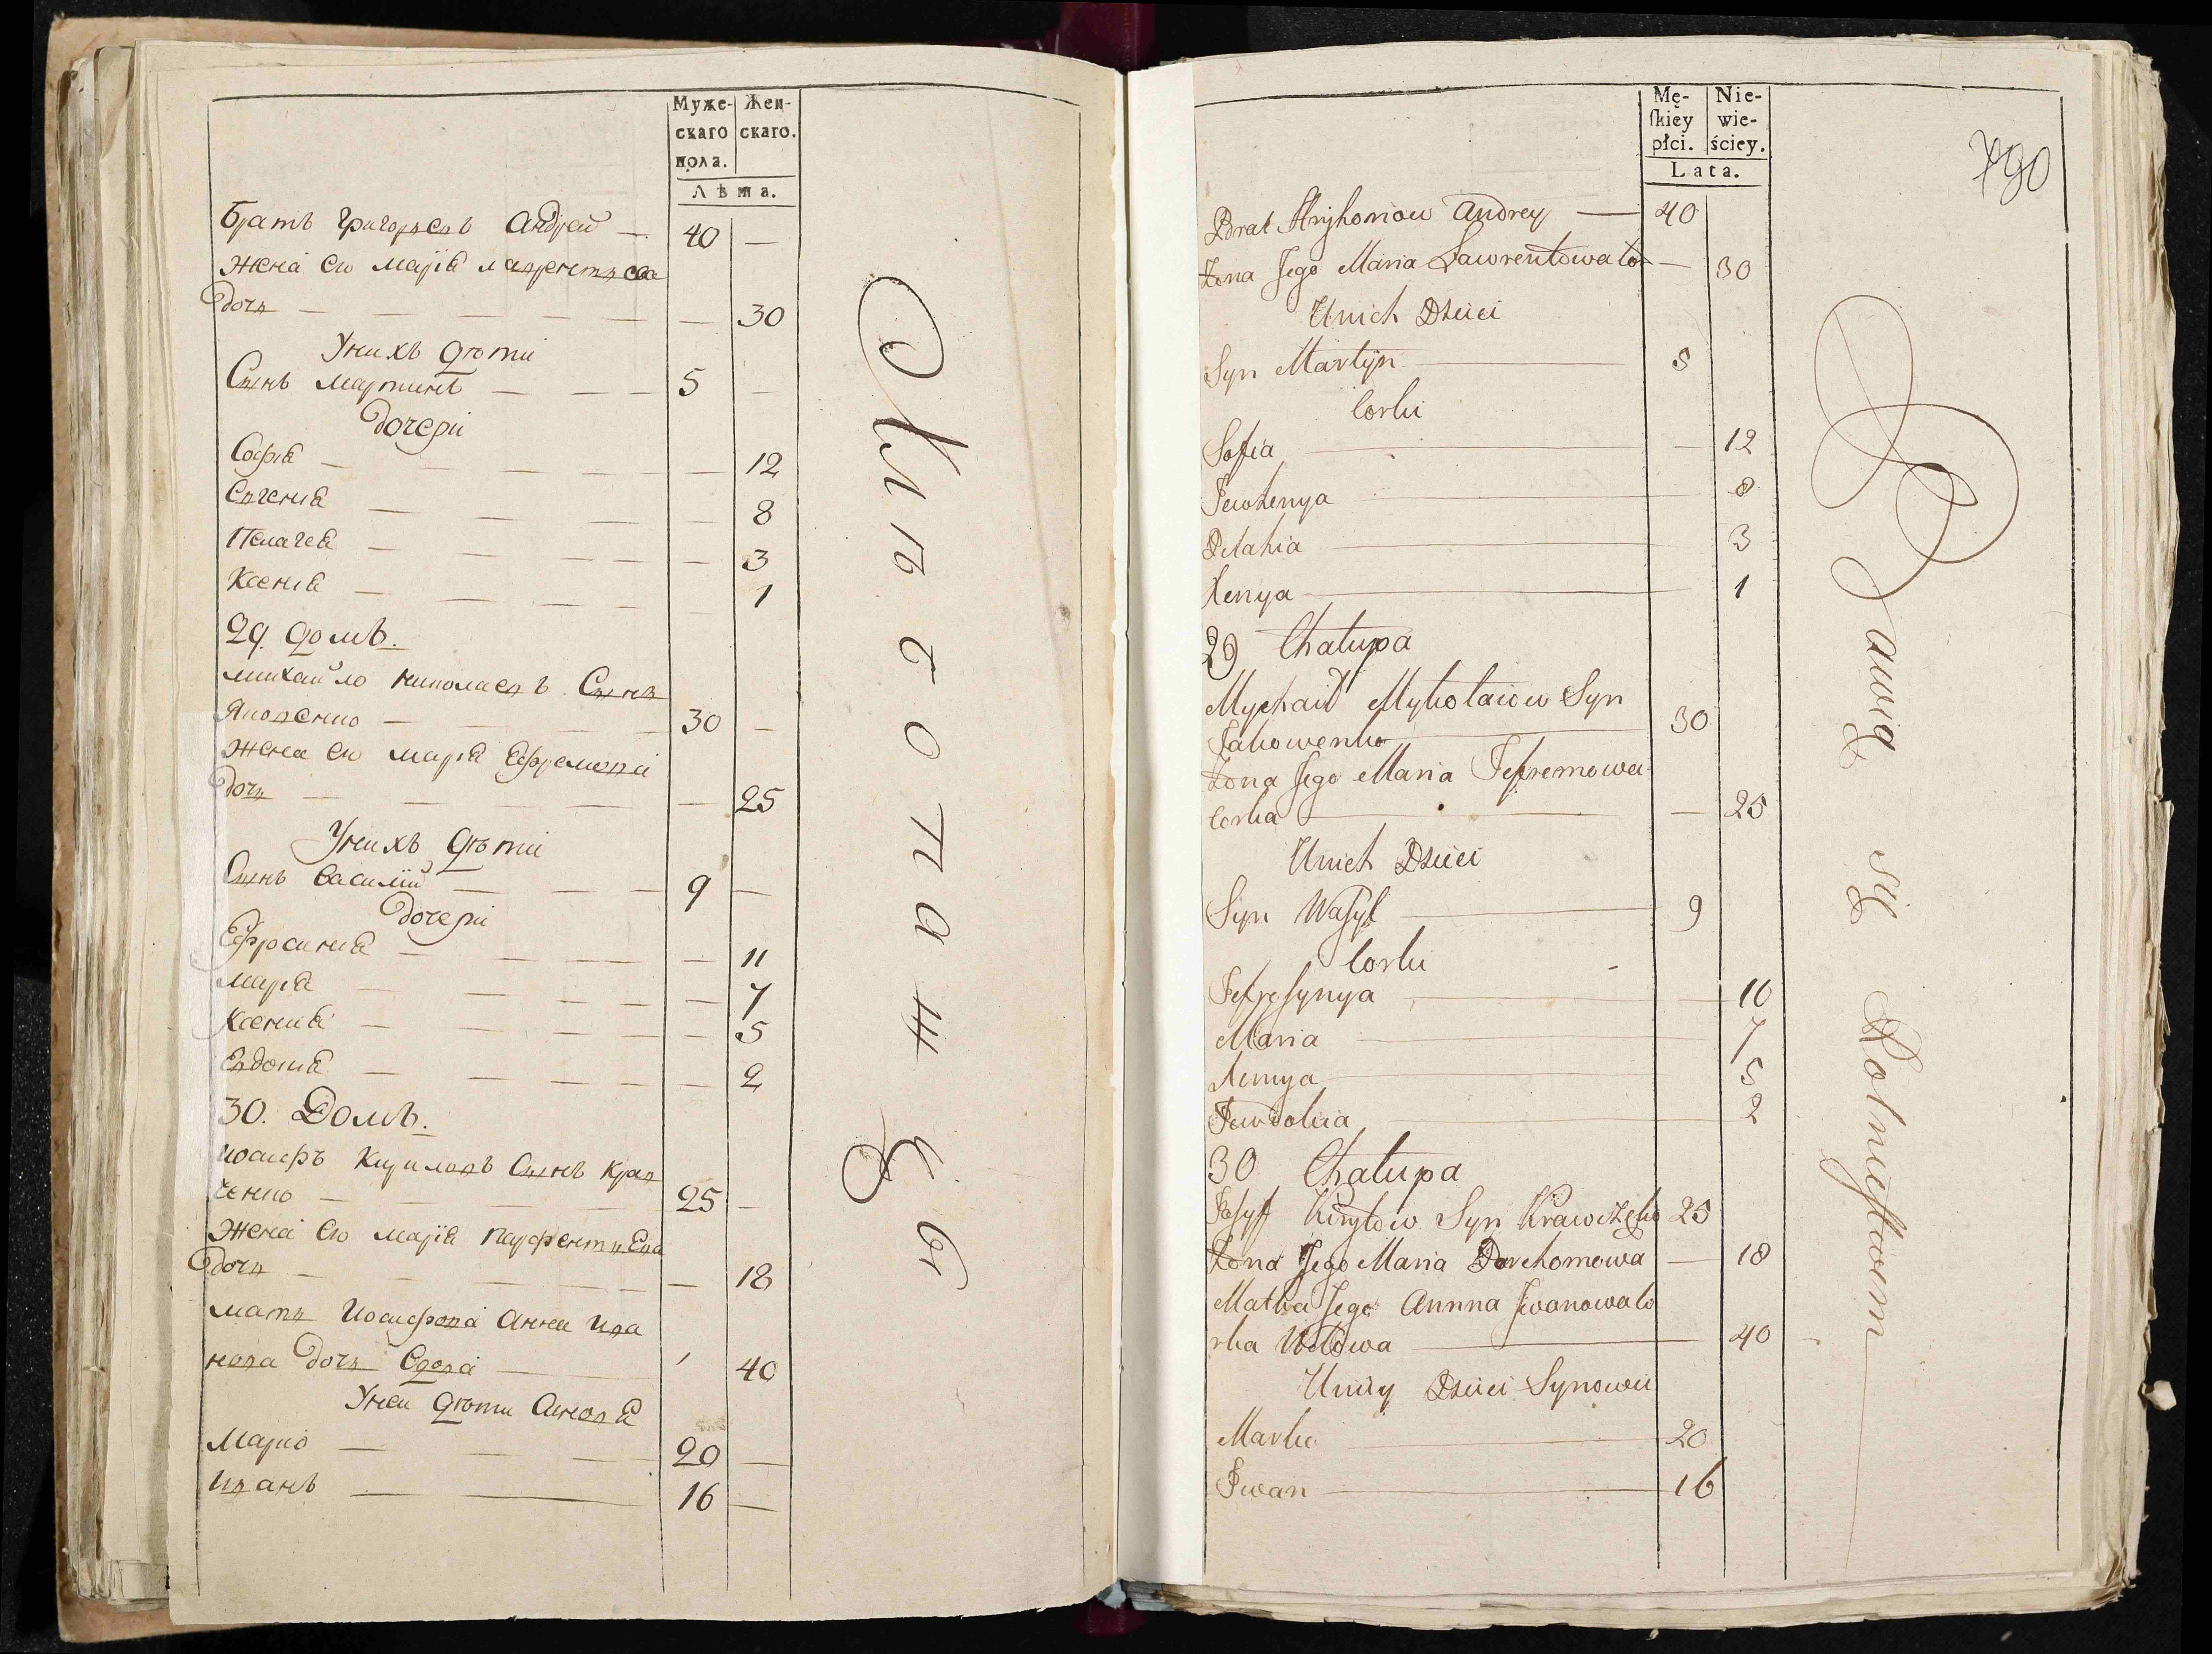 Муже- Жен-
скаго скаго.
пола.
Лѣта.
Братъ Григорьевъ Андрей — 40 —
Жена его марія лаврентьева
дочь — 30
У нихъ дѣти
Сынъ мартинъ — 5 —
дочери
Софія — 12
Евгенія — 8
Пелагея — 3
Ксенія — 1
29. домъ.
михайло николаевъ Сынъ
Яковенко — 30 —
Жена его марія Ефремова
дочь — 25
У нихъ дѣти
Сынъ василій — 9 —
дочери
Ефросинія — 11
марія — 7
Ксенія — 5
Евдокія — 2
30. Домъ.
иосифъ Кириловъ Сынъ Крав
ченко — 25 —
Жена его марія парфентьева
дочь — 18
мать иосифова анна ива
нова дочь вдова — 40
У неи дѣти сыновя
марко — 20 —
иванъ — 16 —
О хлѣбопашествѣ
Mę- Nie-
ſkiey wie-
płci. ściey.
Lata.
790
Brat Hryhoriow Andrey — 40
Żona Jego Maria Lawrentowa Co — 30
Unich Dzieci
Syn Martyn — 5
Corki
Sofia — 12
Jewhenya — 8
Pelahia — 3
Xenya — 1
29 Chałupa
Mychaił Mykołaiow Syn
Jakowenko — 30
Żona Jego Maria Jefremowa
Corka — 25
Unich Dzieci
Syn Waſyl — 9
Corki
Jefroſynya — 10
Maria — 7
Xenya — 5
Jewdokia — 2
30 Chałupa
Joſyf Kiryłow Syn Krawczęko 25
Żona Jego Maria Parchomowa — 18
Matka Jego Annna Jwanowa Co
rka Wdowa — 40
Uniey Dzieci Synowie
Marko — 20
Jwan — 16
Bawią się Rolnictwem